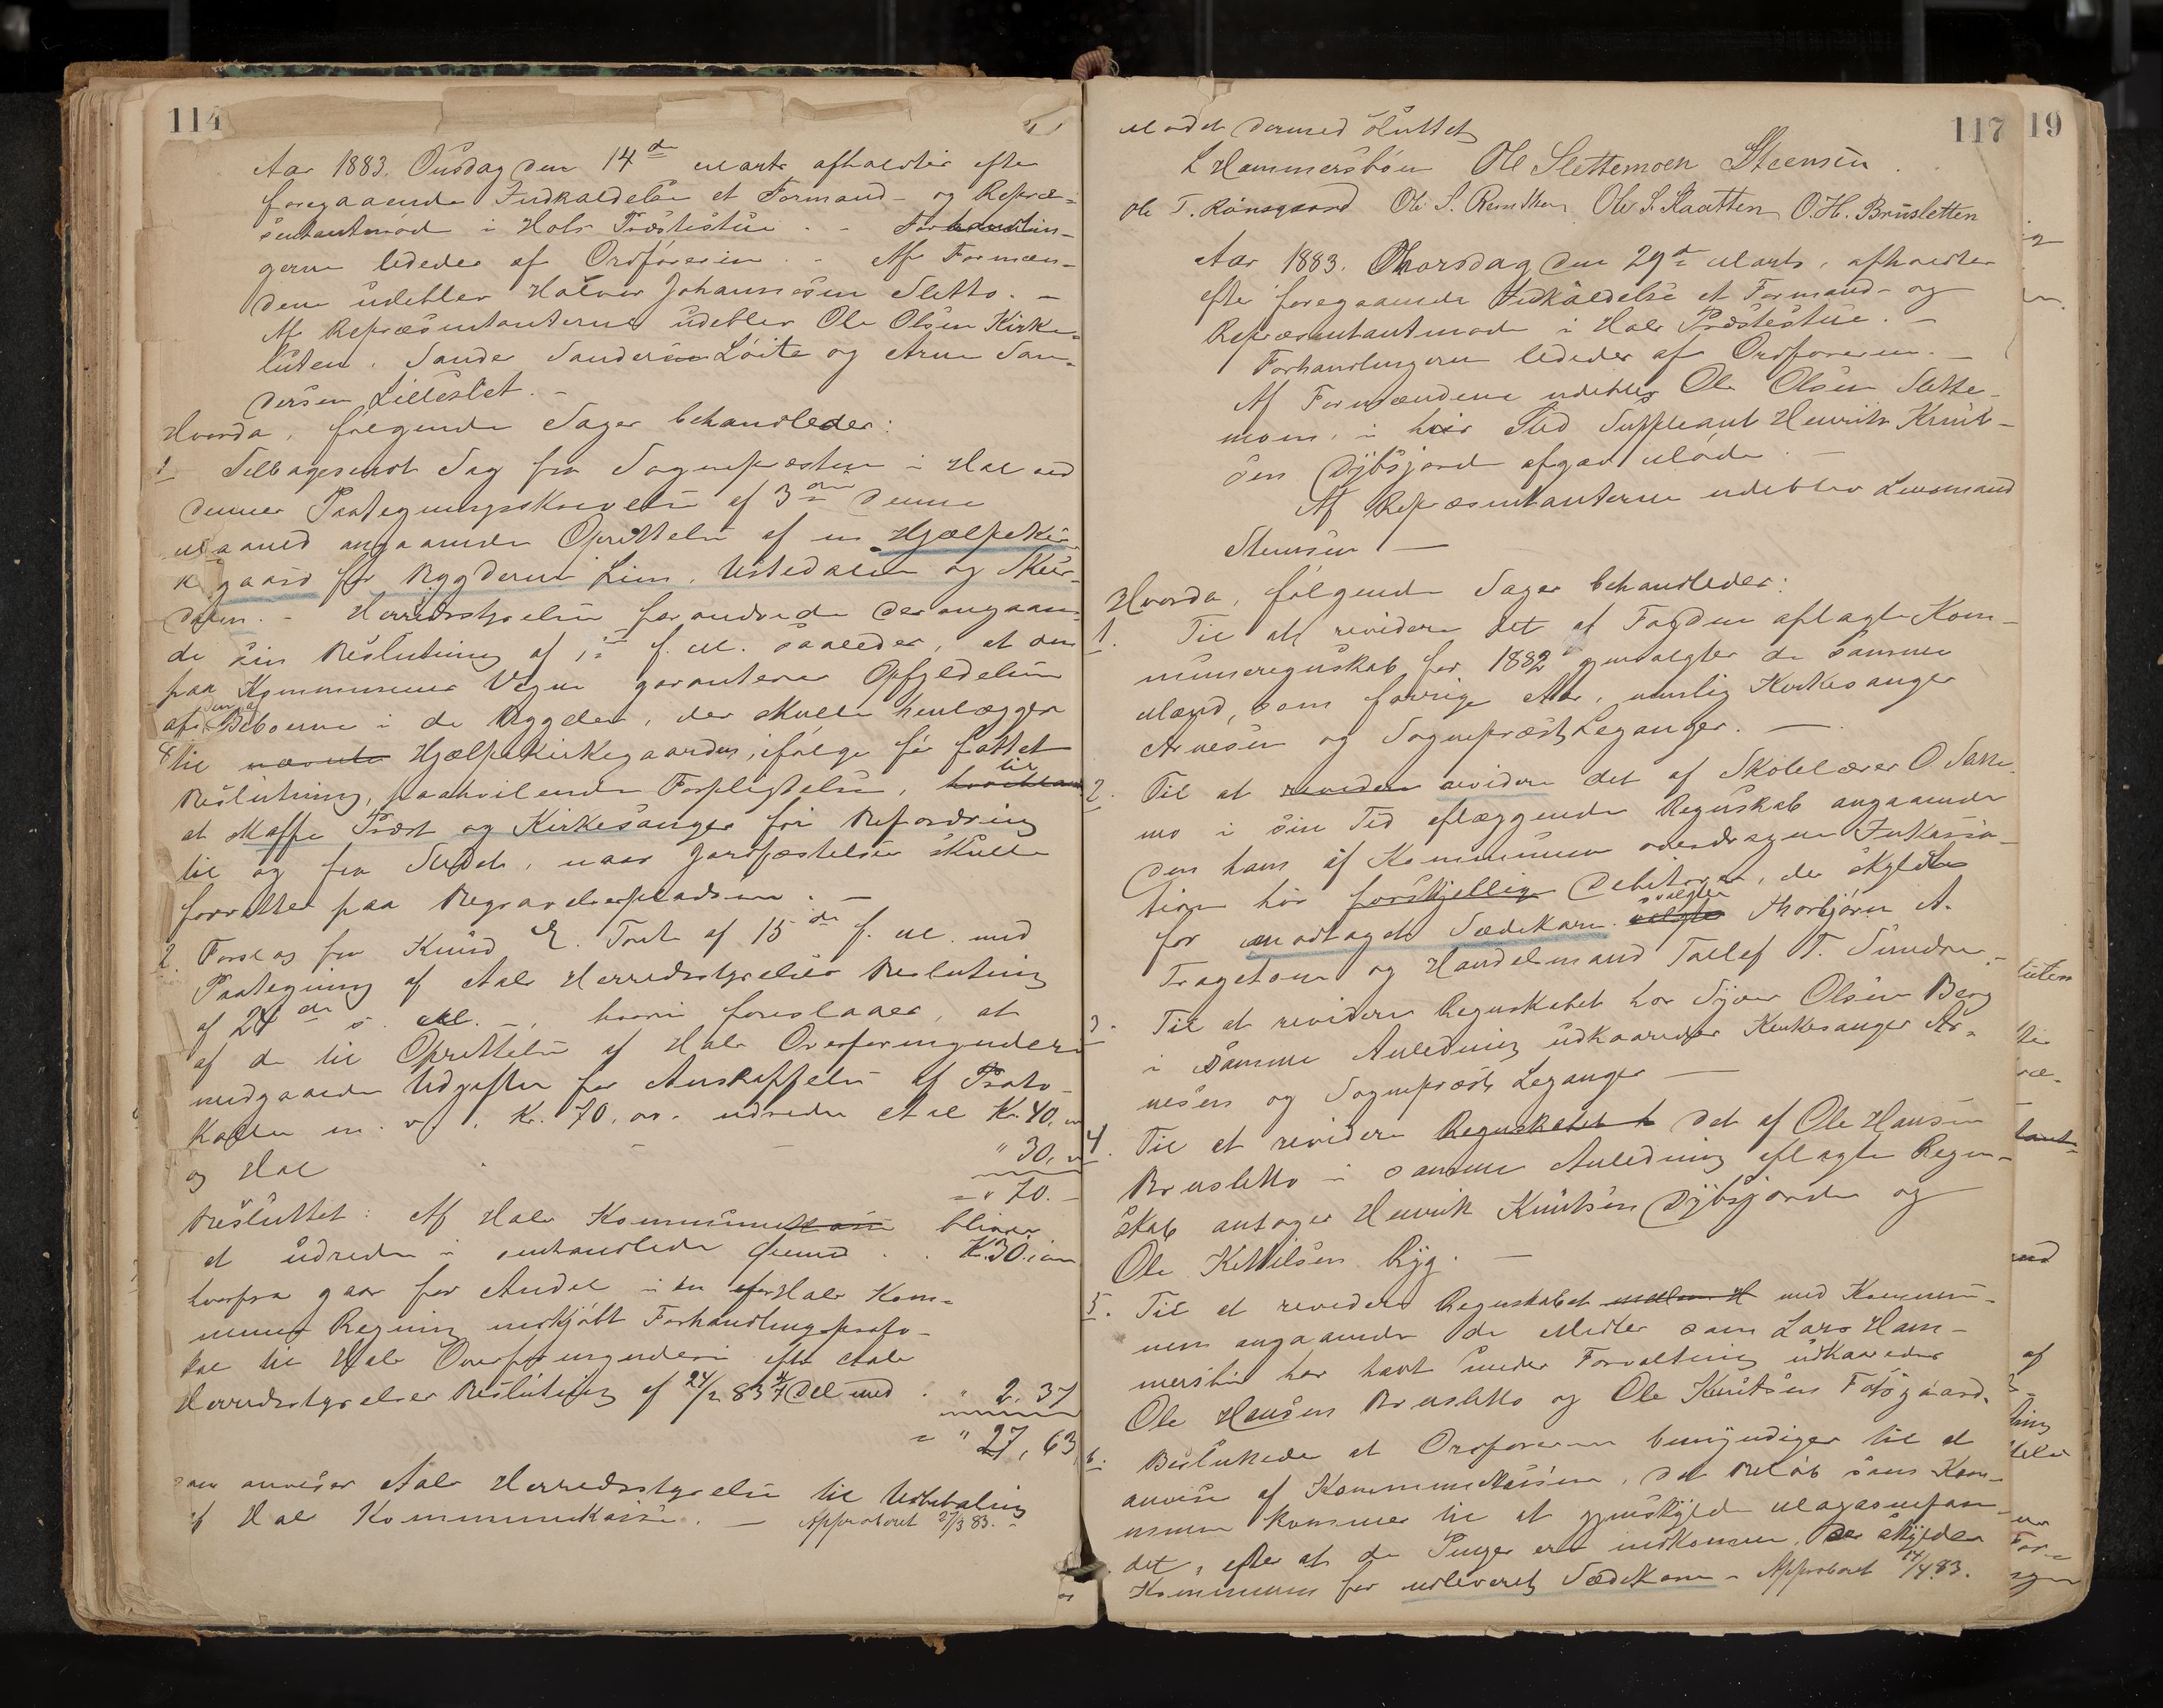 114
Aar 1883. Onsdag den 14de Marts afholdtes efter
foregaaende Indkaldelse et Formand- og Repræ-
sentantmøde i Hols Præstestue. - Forhandlin-
gerne lededes af Ordføreren. - Af Formæn-
dene udeblev Halvor Johannesen Sletto. -
Af Repræsentanterne udeblev Ole Olsen Kirke-
luten, Sander Sandersen Löite og Arne San-
dersen Lilleslet. -
Hvorda, følgende Sager behandledes:
1 Tilbagesendt Sag fra Sognepræsten i Hol med
dennes Paategningsskrivelse af 3die denne
Maaned angaaende Oprettelse af en Hjælpekir-
kegaard for Bygderne Lien, Ustedalen og Skur-
dalen. - Herredsstyrelsen forandrede derangaaen-
de sin Beslutning af 1ste f. M. saaledes, at den
paa Kommunens Vegne garanterer Opfyldelsen
af den af Beboerne i de Bygder, der skulle henlægges
til nævnte Hjælpekirkegaarden, ifølge før fattet
Beslutning, paahvilende Forpligtelse, til
at skaffe Præst og Kirkesanger fri Befordring
til og fra Stedet, naar Jordfæstelse skulle
forrettes paa Begravelsespladsen. -
2. Forslag fra Knud E. Tort af 15de f. M. med
Paategning af Aals Herredsstyrelses Beslutning
af 24de s. M. -, hvori foreslaaes, at
af de til Oprettelse af Hols Overformynderi
medgaaede Udgifter for Anskaffelse af Proto-
koller m. v., Kr. 70,00 udreder Aal Kr. 40,00
og Hol " 30,00
= " 70. -
Besluttet: Af Hols Kommunekasse bliver
at udrede i omhandlede Øiemed .. Kr. 30,00
hvorfra gaar for Andel i en for Hols Kom-
munes Regning indkjøbt Forhandlingsproto-
kol til Hols Overformynderi efter Aals
Herredsstyrelses Beslutning af 24/2 83 3/7 Del med . " 2,37
= " 27,63
som anviser Aals Herredsstyrelse til Udbetaling
af Hols Kommunekasse. - Approberet 27/3 83. -
117 19
Mødet dermed sluttet
L Hammersbøen Ole Slettemoen Steensen
Ole T. Rånsgaard Ole S. Ole S. Skaatten O.H. Brusletten
Aar 1883. Thorsdag den 29de Marts, afholdtes
efter foregaaende Indkaldelse et Formand- og
Repræsentantmøde i Hols Præstestue. -
Forhandlingerne lededes af Ordføreren. -
Af Formændene udeblev Ole Olsen Slette-
moen, i hvis Sted Suppleant Henrik Knut-
sen Dybsjord afgav Møde. -
Af Repræsentanterne udeblev Lensmand
Steensen -
Hvorda, følgende Sager behandledes:
1. Til at revidere det af Fogden aflagte Kom-
muneregnskab for 1882 gjenvalgtes de samme
Mænd, som forrige Aar, nemlig Kirkesanger
Arnesen og Sognepræst Leganger. -
2. Til at revidere revidere det af Skolelærer O Sekse-
mo i sin Tid aflæggende Regnskab angaaende
den ham af Kommunen overdragne Inkassa-
tion hos forskjellige Debitorer, der skyldte
for modtaget Sædekorn. valgtes Thorbjørn A.
Tragetone og Handelsmand Tollef T. Sundre -
3. Til at revidere Regnskabet hos Syver Olsen Berg
i samme Anledning udkaaredes Kirkesanger Ar-
nesen og Sognepræst Leganger -
4. Til at revidere Regnskabet det af Ole Hansen
Brusletto i samme Anledning aflagte Regn-
skab antoges Henrik Knutsen Dybsjorde og
Ole Kittilsen Byg. -
5. Til at revidere Regnskabet med Kommu-
nen angaaende de Midler som Lars Ham-
mersbø har havt under Forvaltning udkaaredes
Ole Hansen Brusletto og Ole Knutsen Fossgaard.
6. Besluttedes at Ordføreren bemyndiges til at
anvise af Kommunekassen, det Beløb som Kom-
munen kommer til at gjenskylde Magasinfon-
det, efter at de Penger ere indkomne, der skyldes
Kommunen for udleveret Sædekorn - Approberet 14/4 83.